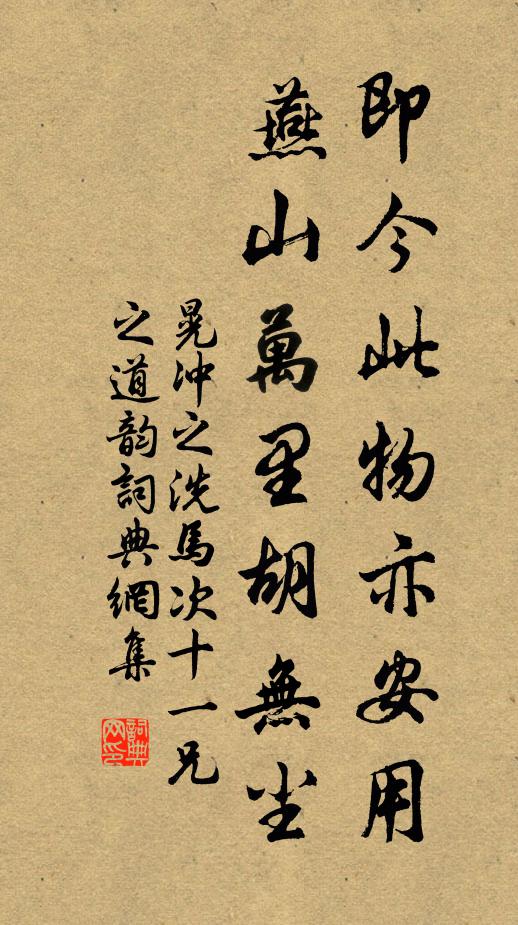 即今此物亦安用
燕山萬里胡無塵
晁沖之洗馬次十一兄
之道韵詞典網集
詞典網印